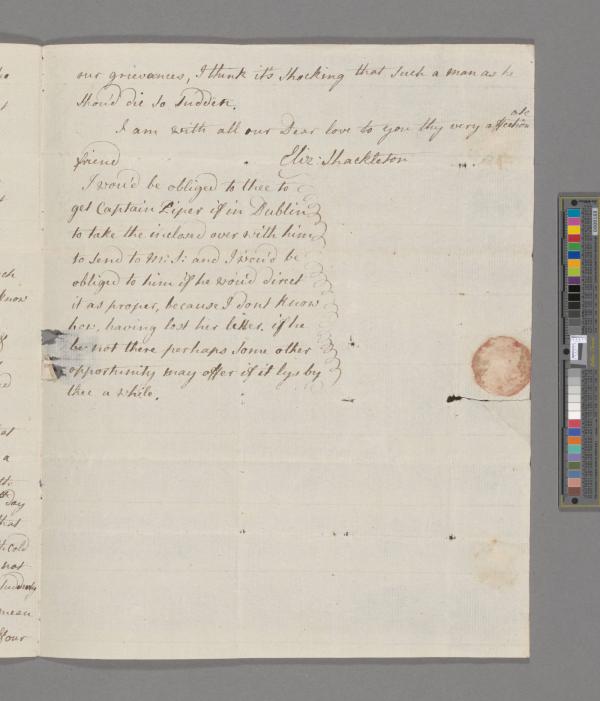 our grievances, I think its shocking that such a man as he
shou'd die so sudden.
I am with all our Dear love to you thy very affection
ate
friend
Eliz: Shackleton
I wou'd be obliged to thee to
get Captain Piper if in Dublin
to take the inclosed over with him
to send to M: S: and I wou'd be
obliged to him if he wou'd direct
it as proper, because I dont know
how, having lost her letter. if he
be not there perhaps some other
opportunity may offer if it lys by
thee a while.
know
at
a
Day
that
cold
not
Suddenly
mean
four